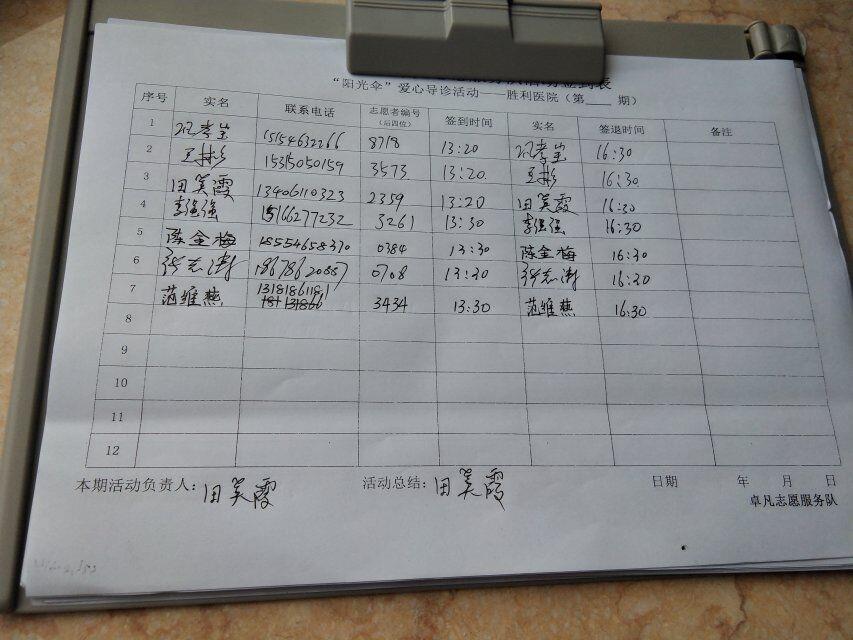 "阳光伞"爱心导诊活动——胜利医院（第___期）
序号 实名 联系电话 志愿者编号（后四位） 签到时间 实名 签退时间 备注
1 15154632266 8718 13:20 16:30
2 王彬彬 15315050159 3573 13:20 王彬 16:30
3 田美霞 13406110323 2359 13:20 田美霞 16:30
4 李强强 15166277232 3261 13:30 李强强 16:30
5 陈金梅 18554658370 0384 13:30 陈金梅 16:30
6 18678620887 0708 13:30 16:30
7 范维燕 13181861181 3434 13:30 范维燕 16:30
8
9
10
11
12
本期活动负责人：田美霞 活动总结：田美霞 日期 年 月 日
卓凡志愿服务队